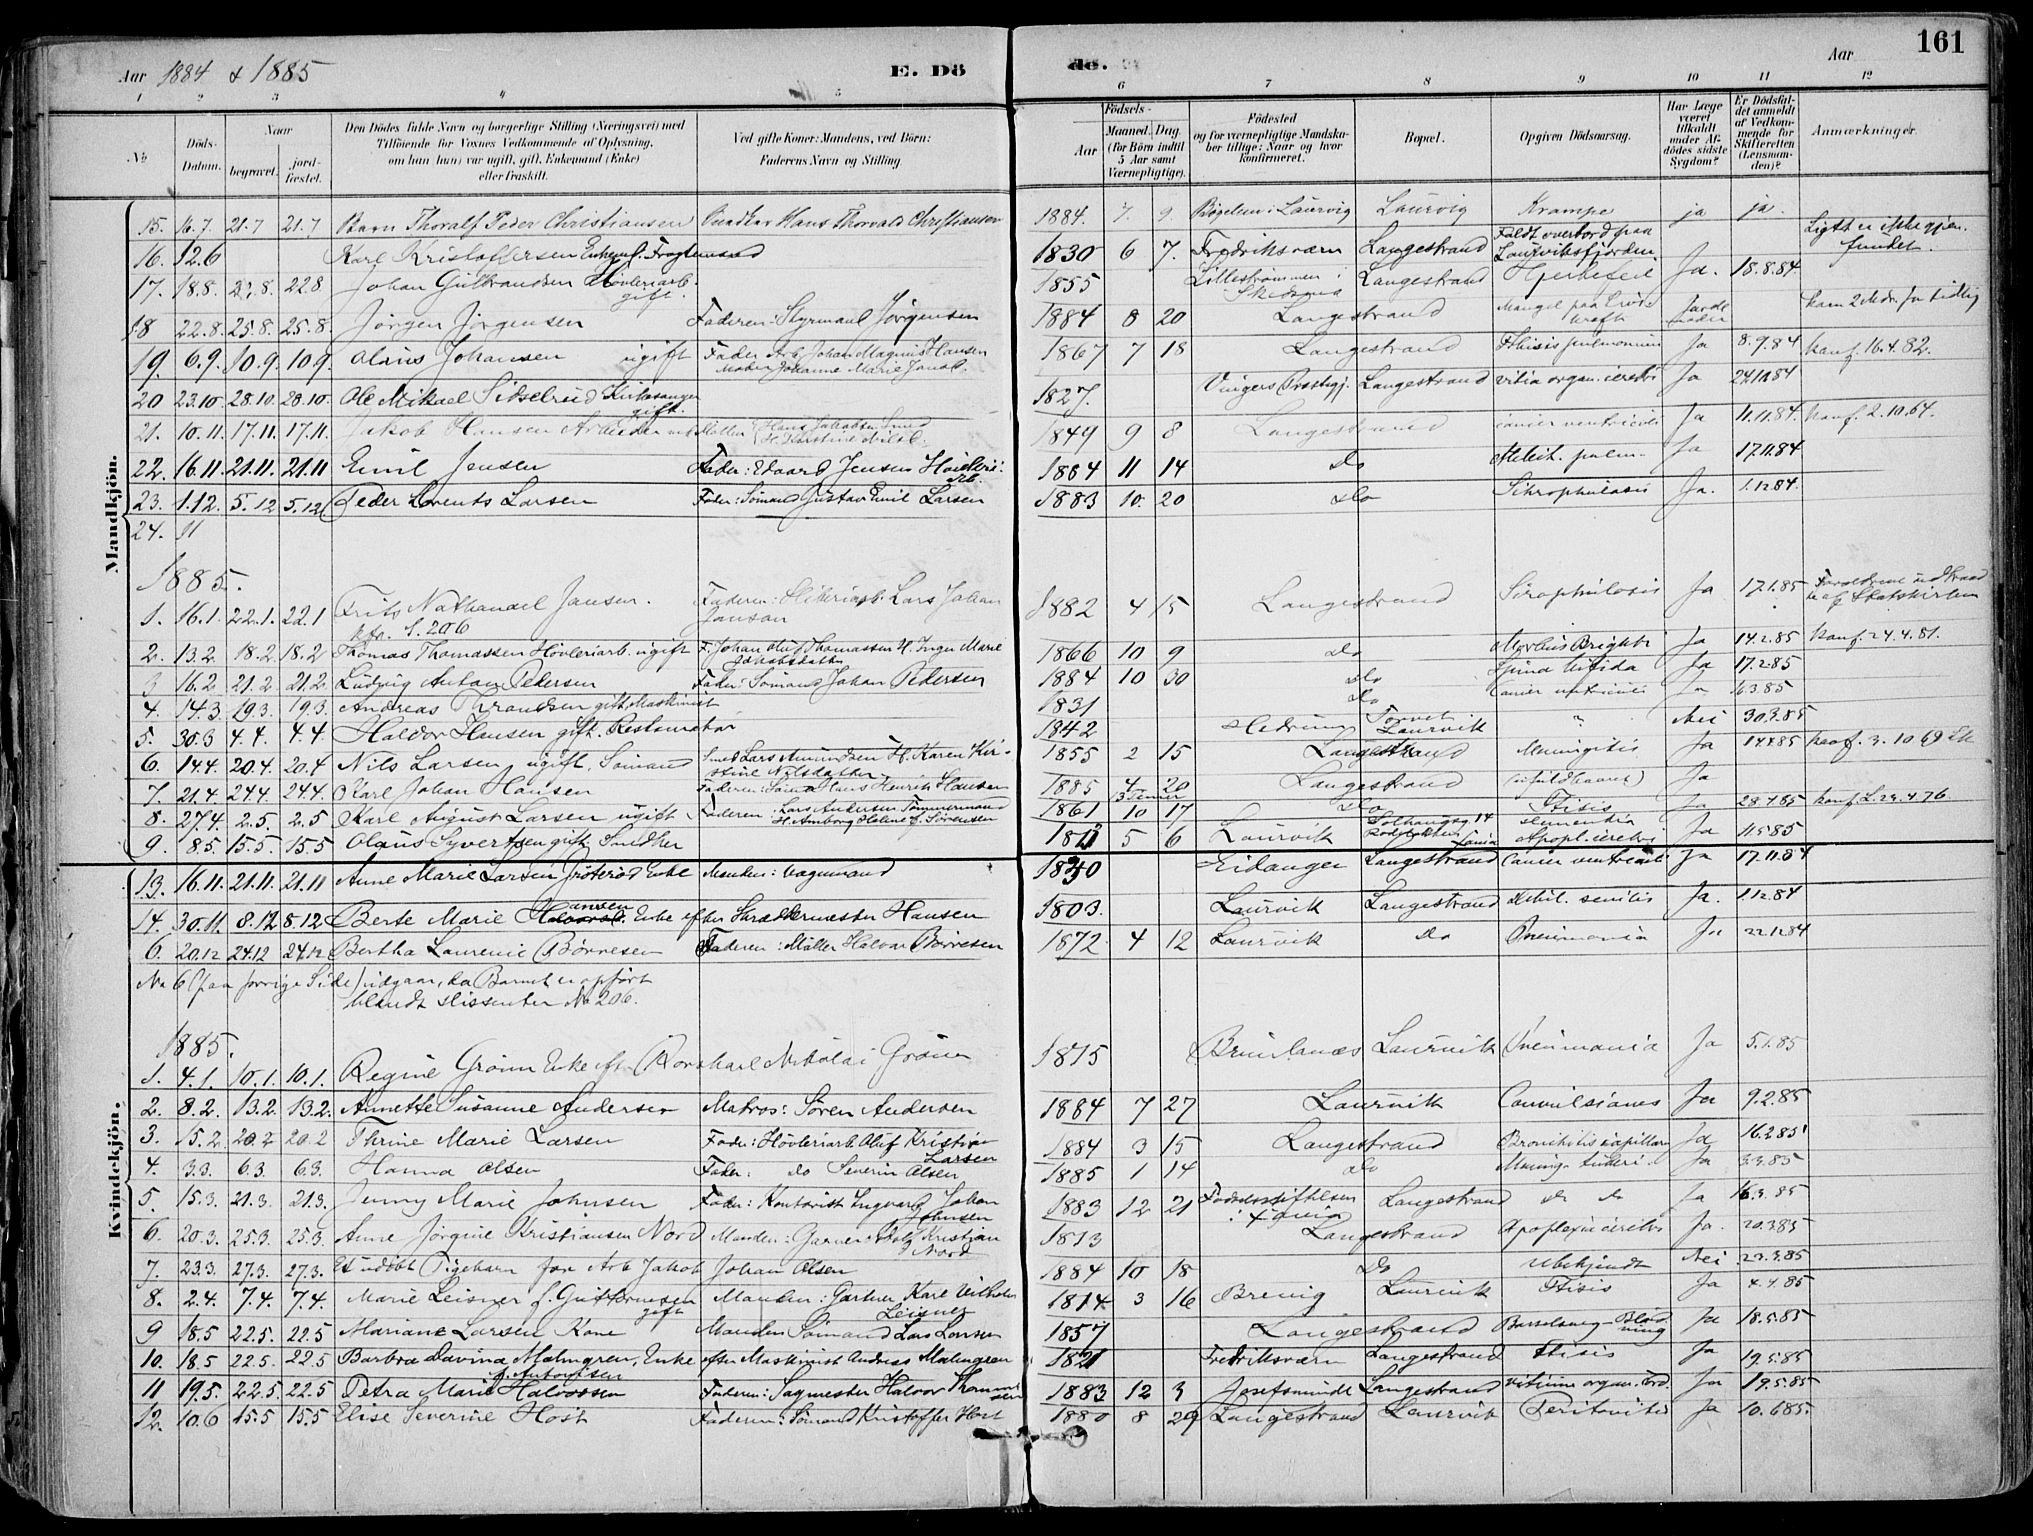 161
Aar 1884 & 1885
E. Dö
de.
Aar
1 2 3 4 5 6 7 8 9 10 11 12
No
Döds-Datum.
Naar
begravet.
jord-fæstet.
Den Dödes fulde Navn og borgerlige Stilling (Næringsvei) med
Tilföiende for Voxnes Vedkommende af Oplysning,
om han (hun) var ugift, gift, Enkemand (Enke)
eller fraskilt.
Ved gifte Koner: Mandens, ved Börn:
Faderens Navn og Stilling.
Födsels-
Aar
Maaned. Dag.
(for Börn indtil
5 Aar samt
Værnepligtige).
Födested
og for værnepligtige Mandska-
ber tillige: Naar og hvor
konfirmeret.
Bopæl.
Opgiven Dödsaarsag.
Har Læge
været
tilkaldt
under Af-
dödes sidste
Sygdom?
Er Dödsfal-
det anmeldt
af Vedkom-
mende for
Skifteretten
(Lensman-
den)?
Anmærkninger.
Mandkjön.
15. 16.7. 21.7 21.7 Barn Thoralf Peder Christiansen Hans Thorvald Christiansen 1884. 7. 9. Laurvig Laurvig Krampe ja ja.
16. 12.6 Karl Kristoffersen Enkem. 1830 6 7. Fredriksværn Langestrand Faldt overbord paa Laurviksfjorden Ligtet er ikke gjen-funden.
17. 18.8. 22.8. 22.8 Johan Gulbrandsen Hövleriarb. gift. 1855 Lillestrømmen i Langestrand Hjertefeil Ja. 18.8.84
18 22.8. 25.8. 25.8. Jörgen Jörgensen Faderen: Styrmand Jörgensen 1884 8 20 Langestrand Mangel paa kom 2 Mdr. for tidlig
19. 6.9. 10.9. 10.9. Olaus Johansen ugift Fader Arb. Johan Magnus Hansen Moder Johanne Marie 1867 7 18 Langestrand Phtisis pulmonum Ja 8.9.84 konf. 16.4.82.
20 23.10. 28.10. 28.10. Ole Mikael Sidselrud Kirkesanger gift. 1827. Vingers Præstegj. Langestrand vitia organ. cerebri Ja 24.10.84
21. 10.11. 17.11. 17.11. Jakob Hansen Arbeider 1849 9 8 Langestrand cancer ventriculi Ja 11.11.84. konf. 2.10.64.
22. 16.11. 21.11. 21.11 Emil Jensen Fader: Edvard Jensen Hövleri-arb. 1884 11 14 Do Ja 17.11.84
23. 1.12. 5.12 5.12 Peder Lorents Larsen Fader: Sömand Gustav Emil Larsen 1883 10. 20 Do Skrophulosis Ja. 1.12.84.
24. 11
1885.
1. 16.1. 22.1. 22.1 Frits Nathanael Jansen. Faderen: Hövleriarb. Lars Johan Janson 1882 4 15 Langestrand Scrophulosis Ja 17.1.85 Forældrene udtraad af Statskirken
2. 13.2. 18.2. 18.2 Thomas Thomassen Hövleriarb. ugift F. Johan Oluf Thomassen H. Inger Marie Jakobsdatter 1866 10 9 Do Morbus Brightii Ja 14.2.85 konf. 24.4.81.
3 16.2. 21.2 21.2 Ludvig Anton Pedersen Fader: Sömand Johan Pedersen 1884 10 30 Do Spina bifida Ja 17.2.85
4. 14.3. 19.3. 19.3 Andreas Thrandsen gift, Maskinist 1831 Do Cancer ventriculi Ja 16.3.85
5. 30.3 4.4. 4.4 Haldor Hansen gift. Restauratör 1842 Hedrum Torvet Laurvik " Nei 30.3.85
6. 14.4. 20.4. 20.4 Nils Larsen ugift. Sömand Smed Lars Amundsen H. Karen Kir-stine Nilsdatter 1855 2 15 Langestrand Meningitis Ja 14.4.85 konf. 3.10.69
7. 21.4 24.4. 24.4. Karl Johan Hansen Faderen: Sömd Hans Henrik Hansen 1885 4 20 Langestrand Ja
8. 27.4. 2.5. 2.5 Karl August Larsen ugift. Faderen: Lars Andersen Tömmermand H. Amborg Helene f. Sörensen 1861 10 17 Do Ftisis Ja 28.4.85 konf. 23.4.76
9. 8.5. 15.5. 15.5 Olaus Syvertsen gift. Snedker 5 6 Laurvik Apopl. cerebri Ja 11.5.85
Kvindekjön.
13. 16.11. 21.11. 21.11 Anne Marie Larsen Enke Manden: Vognmand Eidanger Langestrand Cancer ventriculi Ja 17.11.84
14. 30.11. 8.12 8.12 Berte Marie Hansen Enke efter Skræddermester Hansen 1803. Laurvik Langestrand Debil. senilis Ja. 1.12.84
6. 20.12 24.12 24.12 Bertha Laurenie Börresen Faderen: Möller Halvor Börresen 1872 4 12 Laurvik Do Pneumonia Ja 22.12.84
No 6 (paa forrige Side) udgaar, da Barnet er opfört
blandt dissenter No 206.
1885.
1. 4.1. 10.1. 10.1. Regine Grönn Enke eft. Nikolai Grönn 1815 Brunlanæs Laurvik Pneumonia Ja 5.1.85
2. 8.2. 13.2. 13.2. Annette Susanne Andersen Matros: Sören Andersen 1884 7 27 Laurvik Convulsiones Ja 9.2.85
3. 15.2. 20.2 20.2 Thrine Marie Larsen Fader: Hövleriarb. Oluf Kristian Larsen 1884 3 15 Langestrand Bronchitis capillaris Ja 16.2.85
4. 3.3. 6.3. 6.3. Hanna Olsen Fader: do Severin Olsen 1885 1 14 Do Mening. tuberc. Ja 3.3.85
5. 15.3. 21.3. 21.3. Jenny Marie Johnsen Fader: Kontorist Ingvard Johan Johnsen 1883 12 21 Födselsstiftelsen i Langestrand do do Ja 16.3.85
6. 20.3. 25.3. 25.3. Anne Jörgine Kristiansen Nord Manden: Garver Kristian Nord 1813 Langestrand Apoplexia cerebri Ja. 20.3.85
7. 23.3. 27.3. 27.3. Et udöbt Pigebarn for Arb. Jakob Johan Olsen 1884 10 18 Do Ubekjendt Nei 23.3.85
8. 2.4. 7.4. 7.4. Marie Leisner f. Guttormsen gift Manden: Gartner Karl Vilhelm Leisner 1814 3 16 Brevig Laurvik Ftisis Ja 4.4.85
9 18.5 22.5. 22.5 Mariane Larsen Kone Manden Sömand Lars Larsen 1857 Langestrand Barselseng-Blödning Ja 18.5.85
10. 18.5 22.5. 22.5 Barbra Davina Malmgren, Enke efter Maskinist Andreas Malmgren 1821 Fredriksværn Langestrand Ftisis Ja 19.5.85
11 19.5. 22.5. 22.5 Petra Marie Halvorsen Faderen: Sagmester Halvor Thommesen 1883 12 3 Langestrand vitium organ. cord. Ja 19.5.85
12. 10.6 15.5 15.5 Elise Severine Host Faderen: Sömand Kristoffer Host 1880 8 29 Langestrand Laurvik Peritonitis Ja 10.6.85.